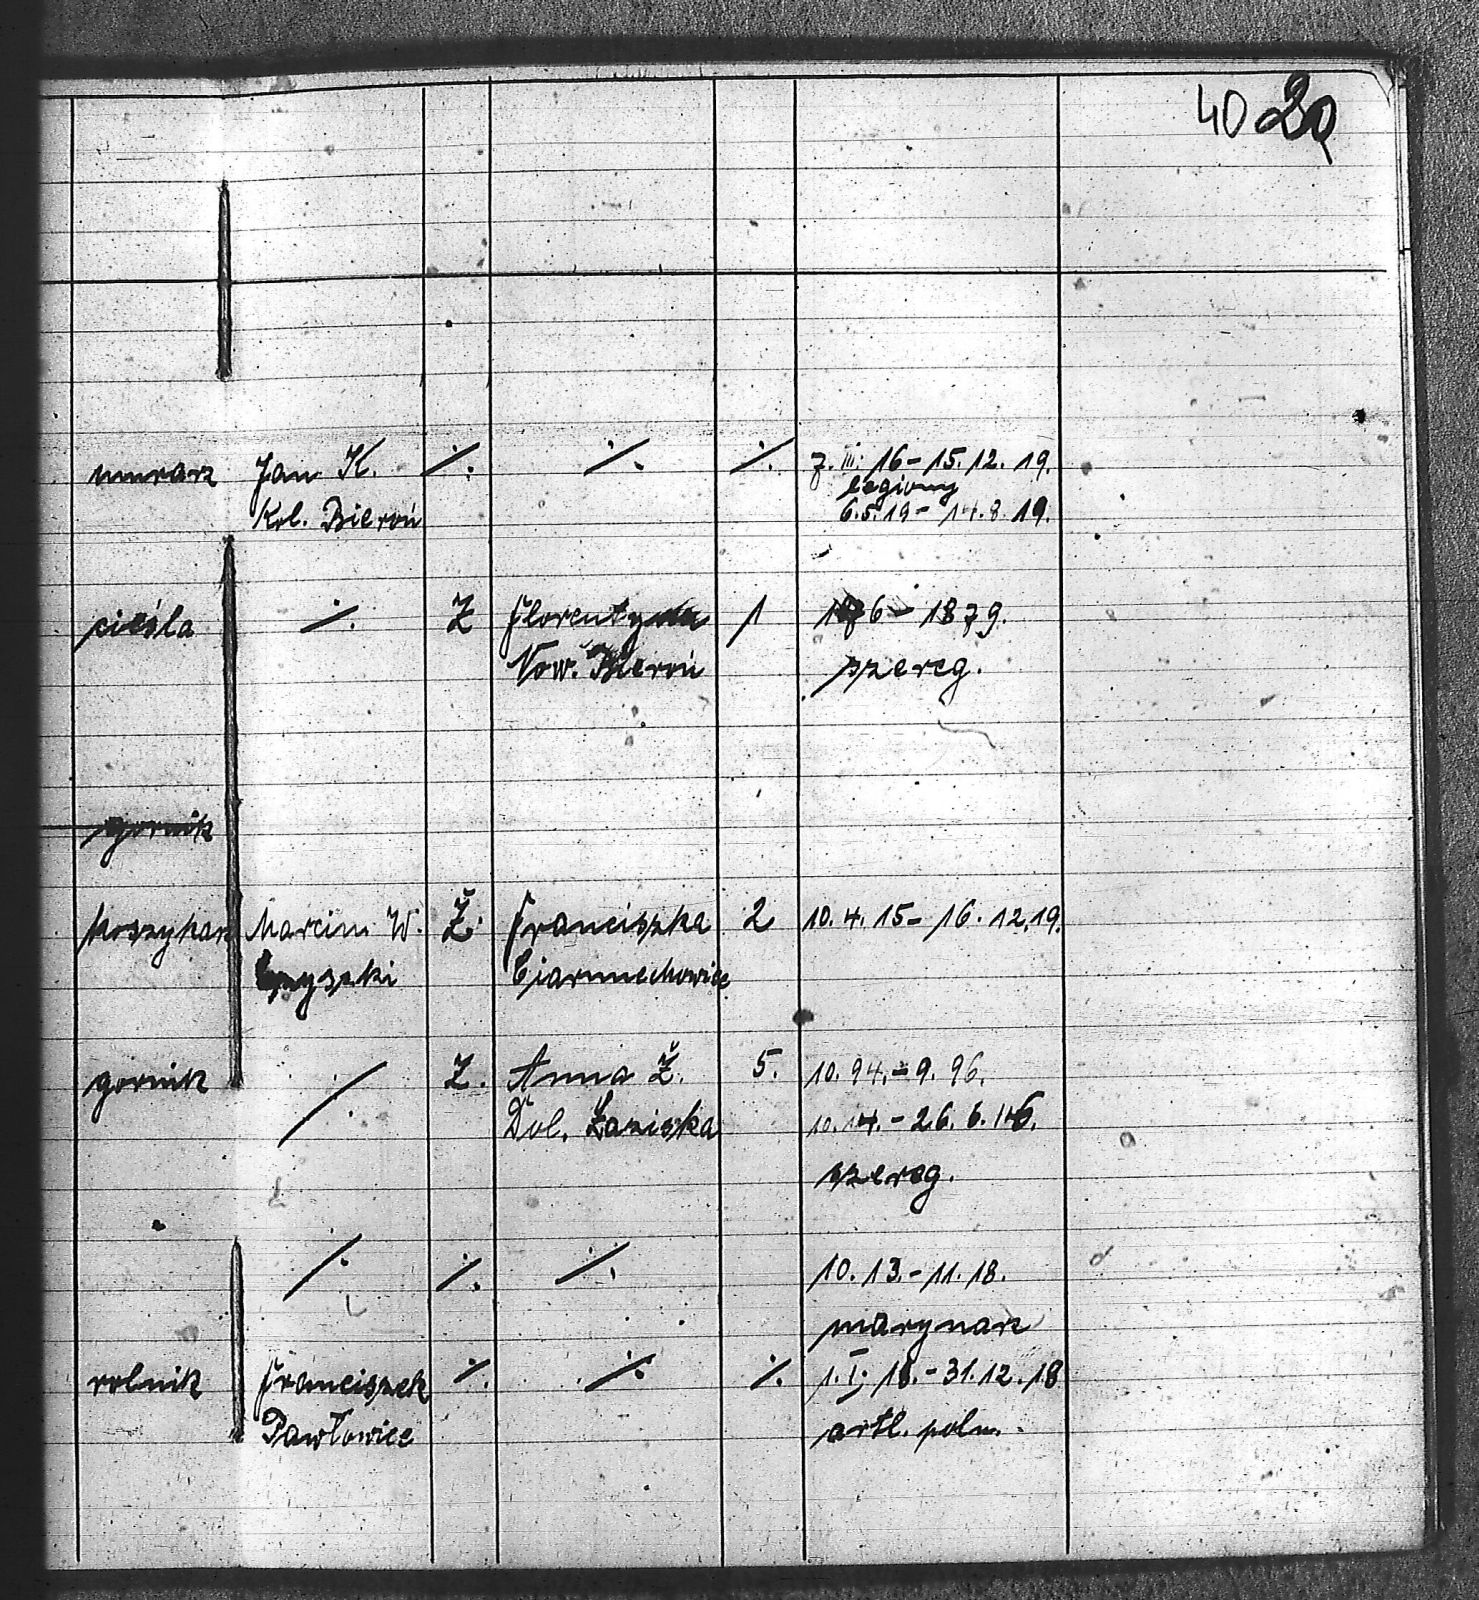 40 20
murarz Jan K. ./. ./. ./. 7. III. 16 - 15. 12. 19.
legiony
Kol. Bieruń 6.5.19 - 14.8.19.
cieśla ./. Z Florentyna 1 1876 - 1879.
Now. Bieruń szereg.
gornik
koszykarz Marcin W. Ż. Franciszka 2 10. 4. 15 - 16. 12. 19.
Ciarnuchowice
gornik ./. Z. Anna Ż. 5. 10. 94. - 9. 96.
Dol. Łaziska 10. 14. - 26. 6. 16.
szereg.
./. ./. ./. 10. 13. - 11. 18.
marynarz
rolnik Franciszek ./. ./. ./. 1. I. 18. - 31. 12. 18
Pawłowice artl. poln.